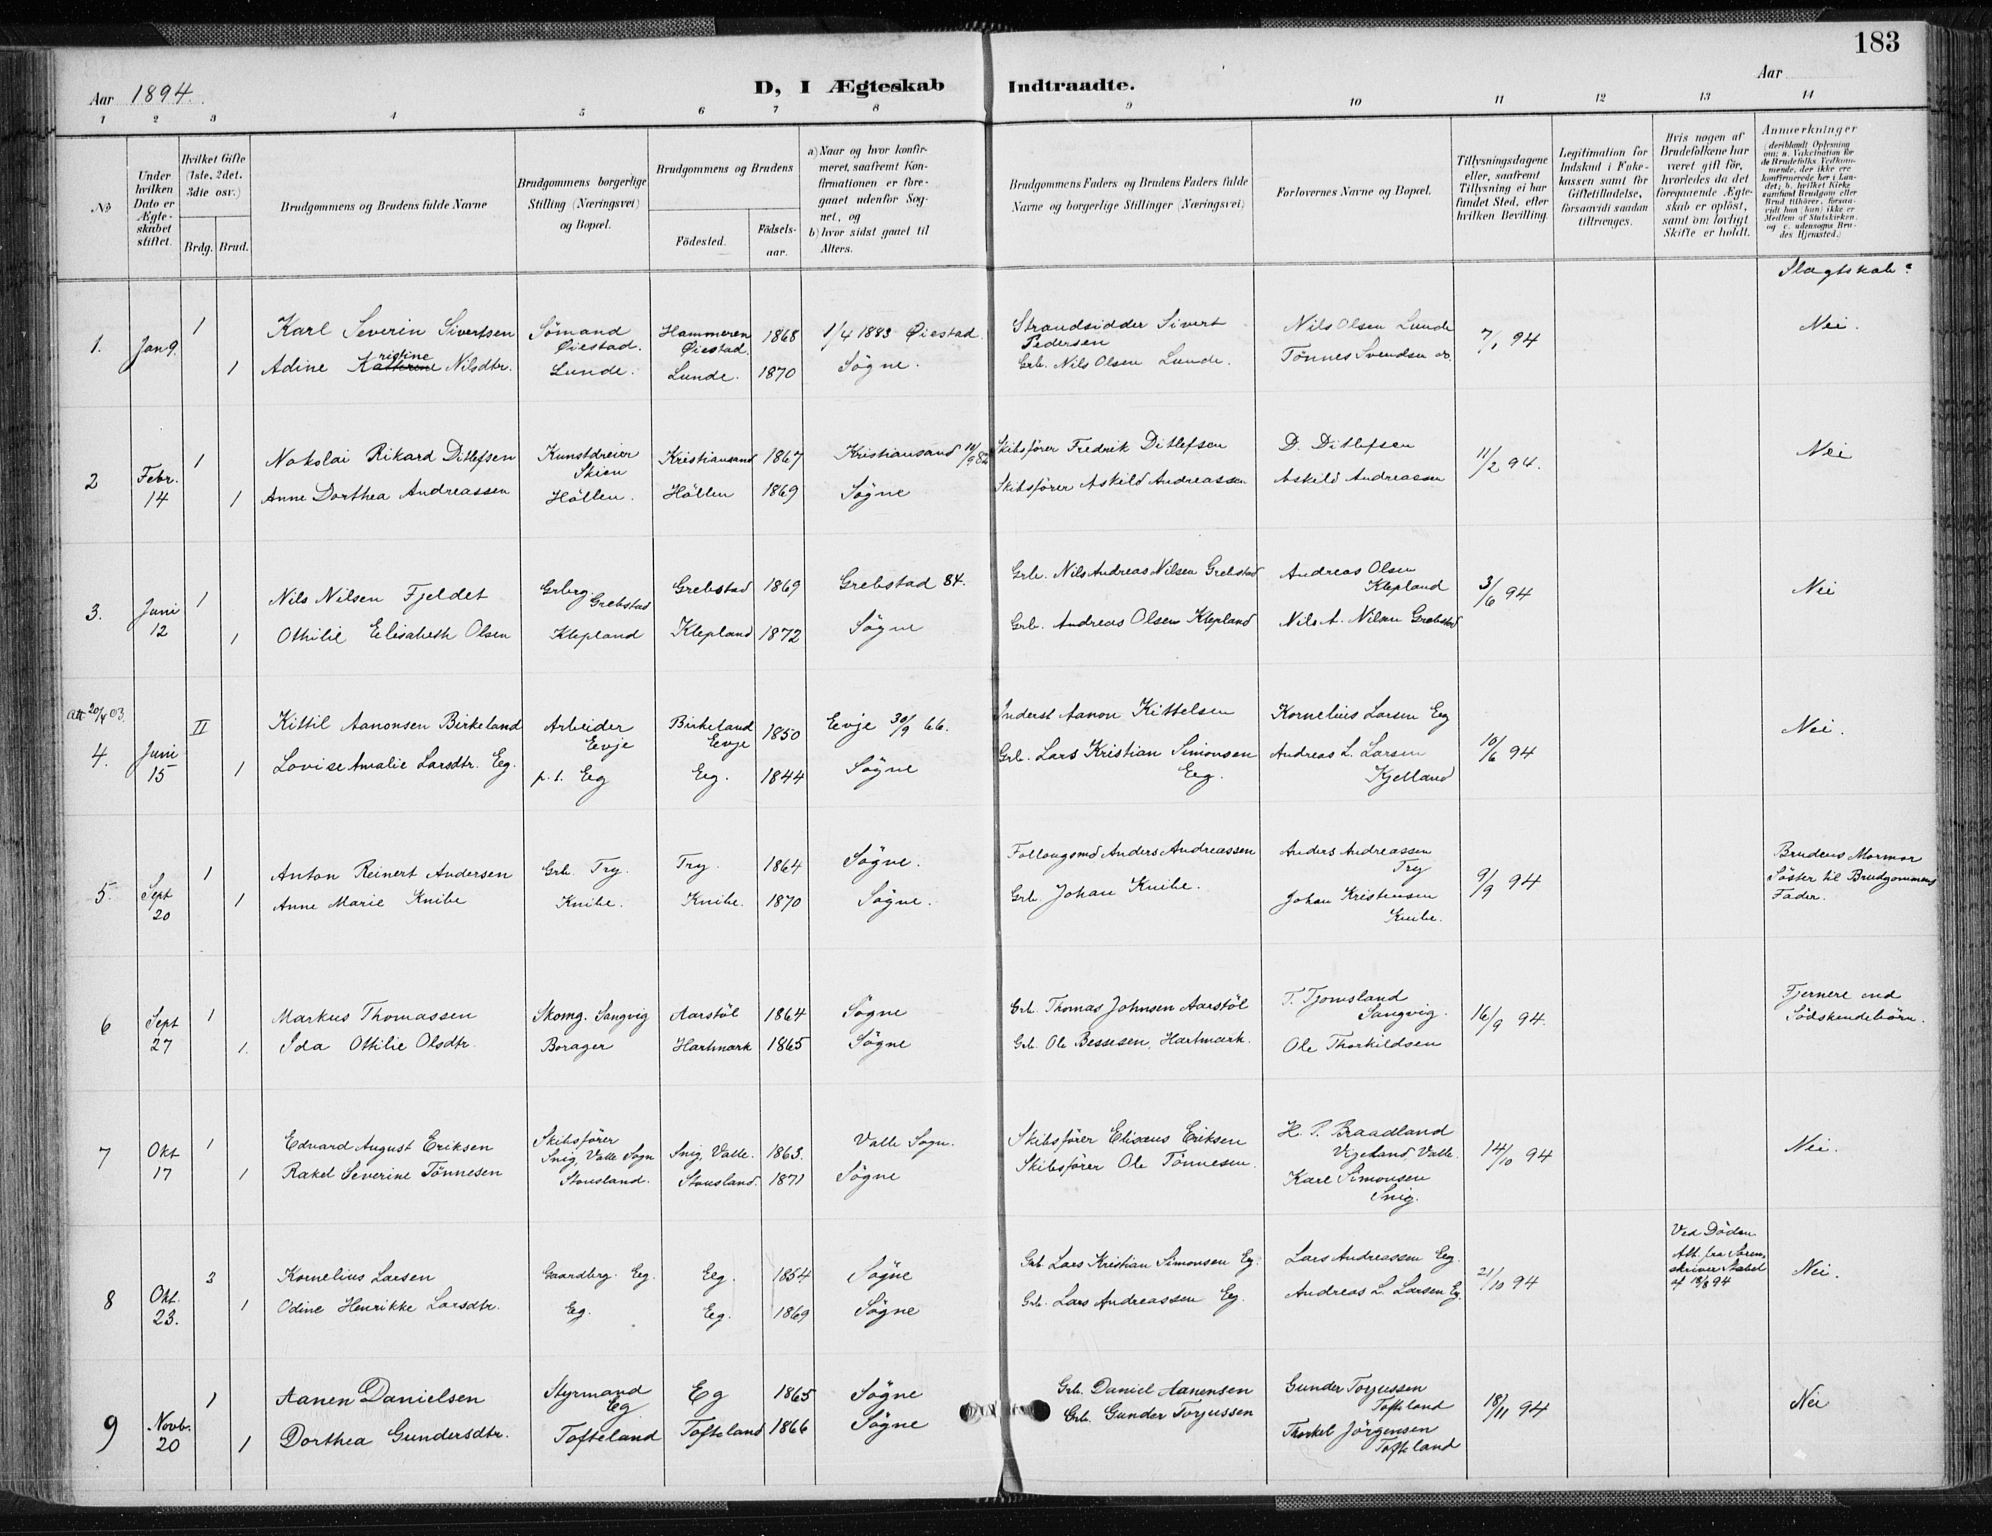 183
Aar 1894.
D, I Ægteskab Indtraadte.
Aar
1 2 3 4 5 6 7 8 9 10 11 12 13 14
No
Under hvilken Dato er Ægteskabet stiftet.
Hvilket Gifte (1ste, 2det. 3die osv.)
Brdg. Brud.
Brudgommens og Brudens fulde Navne
Brudgommens borgerlige Stilling (Næringsvei) og Bopæl.
Brudgommens og Brudens
Fødested.
Fødselsaar.
a) Naar og hvor konfirmeret, saafremt Konfirmationen er foregaaet udenfor Sognet, og
b) hvor sidst gaaet til Alters.
Brudgommens Faders og Brudens Faders fulde Navne og borgerlige Stillinger (Næringsvei)
Forlovernes Navne og Bopæl.
Tillysningsdagene eller, saafremt Tillysning ei har fundet Sted, efter hvilken Bevilling.
Legitimation for Indskud i Enkekassen samt for Giftetilladelse, forsaavidt saadan tiltrænges.
Hvis nogen af Brudefolkene har været gift før, hvorledes da det foregaaende Ægteskab er opløst, samt om lovligt Skifte er holdt.
Anmærkninger (deriblandt Oplysning om: a. Vakcination for de Brudefolks Vedkommende, der ikke ere konfirmerede her i Landet; b. hvilket Kirkesamfund Brudgom eller Brud tilhører, forsaavidt han (hun) ikke er Medlem af Statskirken, og c. udensogns Brudes Hjemsted.)
Slægtskab:
1. Jan 9. 1 Karl Severin Sivertsen Sömand Öiestad. Hammeren Öiestad. 1868 1/4 1883 Öiestad. Strandsidder Sivert Pedersen Nils Olsen Lunde 7/1 94 Nei.
1 Adine Katherine ristine Nilsdtr. Lunde. Lunde. 1870 Sögne. Grb. Nils Olsen Lunde. Tönnes Svendsen
2 Febr. 14 1 Nokolai Rikard Ditlefsen Kunstdreier Skien Kristiansand 1867 Kristiansand 10/9 82 Skibsförer Fredrik Ditlefsen D. Ditlefsen 11/2 94. Nei
1 Anne Dorthea Andreassen Höllen. Höllen 1869 Sögne Skibsförer Askild Andreassen Askild Andreassen
3. Juni 12 1 Nils Nilsen Fjeldet Grbrg Grebstad Grebstad 1869 Grebstad 84. Grb. Nils Andreas Nilsen Grebstad Andreas Olsen Klepland 3/6 94 Nei
1 Othilie Elisabeth Olsen Klepland Klepland 1872 Sögne Grb. Andreas Olsen Klepland Nils A. Nilsen Grebstad
Att 20/4 03.
4. Juni 15 II Kittil Aanonsen Birkeland Arbeider Eevje Birkeland Eevje 1850 Eevje 30/9 66. Inderst Aanon Kittelsen Kornelius Larsen Eeg 10/6 94 Nei.
1 Lovise Amalie Larsdtr. Eeg. p. t. Eeg Eeg. 1844 Sögne Grb. Lars Kristian Simonsen Eeg. Andreas L. Larsen Kjelland
5. Sept 20 1 Anton Reinert Andersen Grb. Try. Try. 1864 Sögne. Follougsmd Anders Andreassen Anders Andreassen Try 9/9 94 Brudens Mormor Söster til Brudgommens Fader.
1 Anne Marie Knibe Knibe. Knibe. 1870 Sögne. Grb. Johan Knibe. Johan Kristensen Knibe.
6 Sept 27 1 Markus Thomassen Skomg. Sangvig Aarstöl 1864 Sögne Grb. Thomas Johnsen Aarstöl T. Tjomsland Sangvig. 16/9 94. Fjernere end Södskendebörn.
1. Ida Othilie Olsdtr. Borager Hartmark 1865 Sögne Grb. Ole Bessesen, Hartmark. Ole Thorkildsen
7 Okt 17 1 Edvard August Eriksen Skibsförer Snig, Valle Sogn Snig, Valle. 1863. Valle Sogn. Skibsförer Elisæus Eriksen H. P. Braadland Vigeland Valle. 14/10 94 Nei.
1 Rakel Severine Tönnesen Stousland. Stousland. 1871 Sögne Skibsförer Ole Tönnesen. Karl Simonsen Snig.
8 Okt. 23. 3 Kornelius Larsen Gaardbrg. Eeg. Eeg. 1854 Sögne Grb Lars Kristian Simonsen Eg. Lars Andreassen Eeg. 21/10 94 Ved Döden Att. fra Sorenskriver Stabel af 18/8 94 Nei.
1 Odine Henrikke Larsdtr. Eeg. Eeg. 1869 Sögne Grb. Lars Andreassen Eeg. Andreas L. Larsen Eg.
9 Novb. 20 1 Aanen Danielsen Styrmand Eg Eg 1865 Sögne Grb. Daniel Aanensen Gunder Torjussen Tofteland 18/11 94 Nei
1 Dorthea Gundersdtr. Tofteland Tofteland 1866 Sögne Grb. Gunder Torjussen Thorkel Jörgensen Tofteland